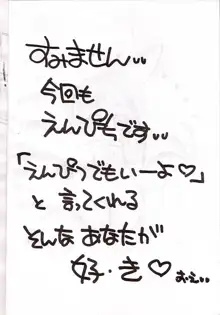 すみません..
今回も
えんぴつです..
「えんぴつでもいーよ♡」
と言ってくれる
そんなあなたが
好・き♡